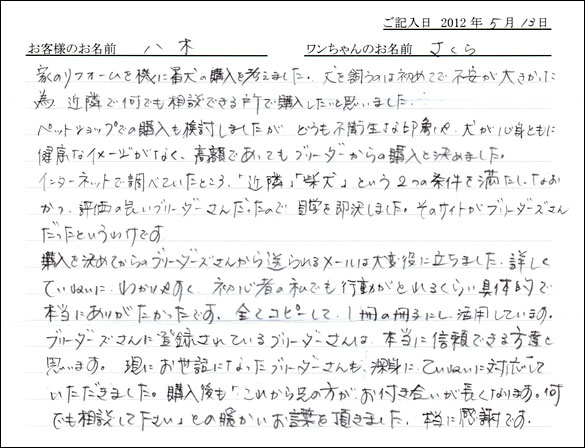 ご記入日 2012年5月13日
お客様のお名前 八木 ワンちゃんのお名前 さくら
家のリフォームを機に番犬の購入を考えました。犬を飼うのは初めてで不安が大きかった
為 近隣で何でも相談できる所で購入したいと思いました。
ペットショップでの購入も検討しましたが どうも不衛生な印象や、犬が心身ともに
健康なイメージがなく、高額であってもブリーダーからの購入と決めました。
インターネットで調べていたところ、「近隣」「柴犬」という2つの条件を満たし、なお
かつ、評価の良いブリーダーさんだったので 見学を即決しました。そのサイトがブリーダーズさん
だったというわけです
購入を決めてからのブリーダーズさんから送られるメールは大変役に立ちました。詳しく
ていねいに、わかりやすく 初心者の私でも行動がとれるくらい具体的で
本当にありがたかったです。全てコピーして、1冊の冊子にし、活用しています。
ブリーダーズさんに登録されているブリーダーさんは、本当に信頼できる方達と
思います。現にお世話になったブリーダーさんも、深身に、ていねいに対応して
いただきました。購入後も「これから先の方が お付き合いが長くなります。何
でも相談して下さい」との暖かいお言葉を頂きました。本当に感謝です。